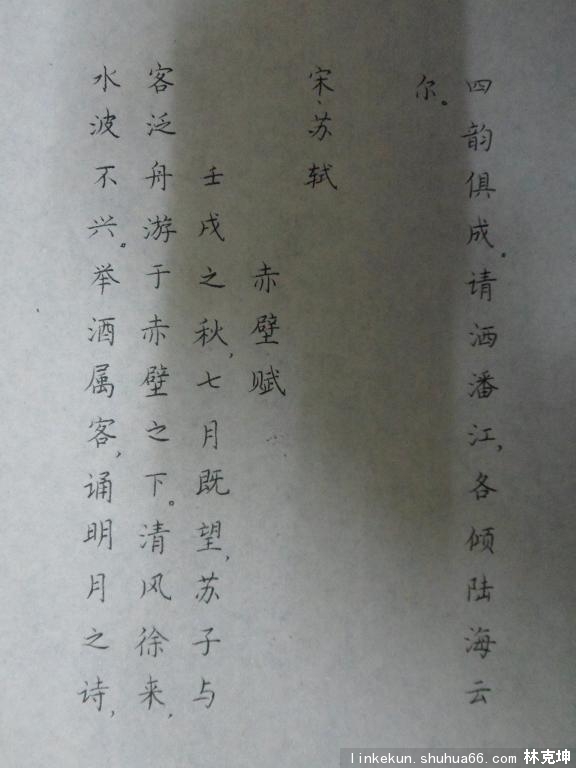 四韵俱成。请洒潘江,各倾陆海云
尔。
宋、苏轼
赤壁赋
壬戌之秋,七月既望,苏子与
客泛舟游于赤壁之下。清风徐来,
水波不兴。举酒属客,诵明月之诗,
linkekun.shuhua66.com 林克坤